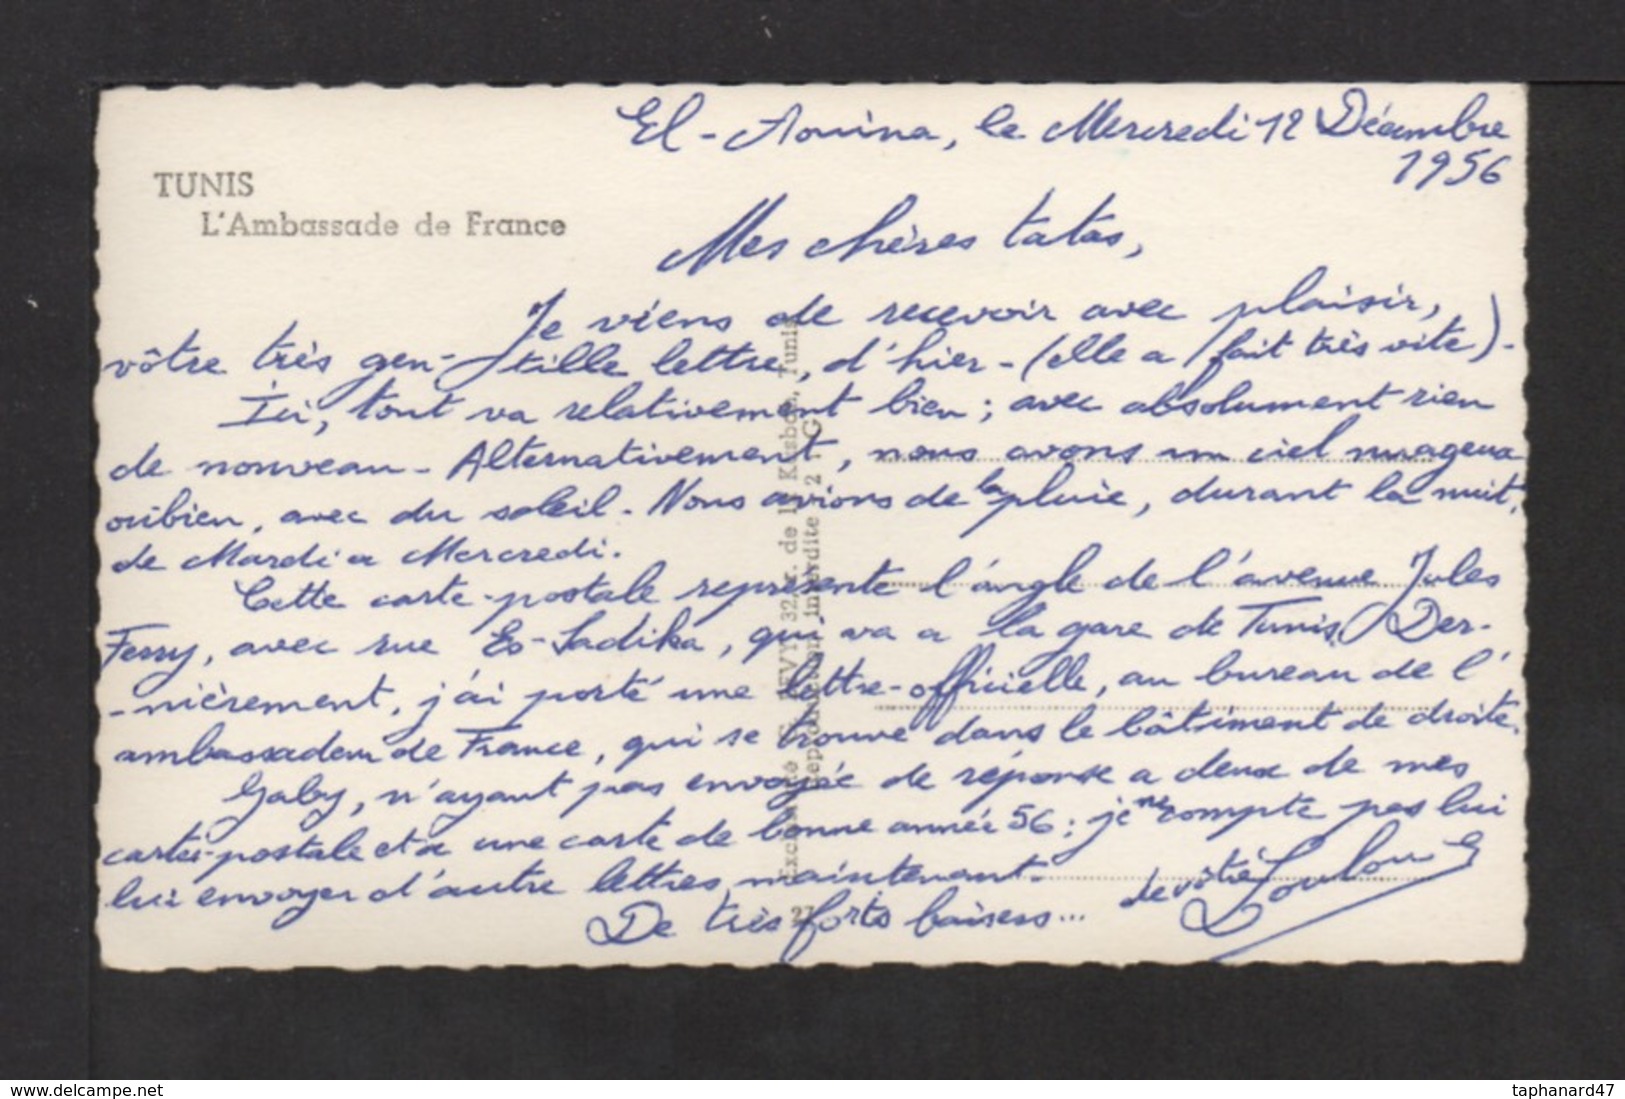 El-Aouina, le Mercredi 12 Décembre
1956
TUNIS
L'Ambassade de France
Mes chères tatas,
Je viens de recevoir avec plaisir,
vôtre très gen-tille lettre, d'hier-(elle a fait très vite)-
Ici, tout va relativement bien; avec absolument rien
de nouveau- Alternativement, nous avons un ciel nuageux
oubien, avec du soleil- Nous avions de la pluie, durant la nuit,
de Mardi a Mercredi.
Cette carte-postale représente l'angle de l'avenue Jules
Ferry, avec rue Es-Sadika, qui va a la gare de Tunis. Der-
-nièrement, j'ai porté une lettre-officielle, au bureau de l'
ambassadeur de France, qui se trouve dans le bâtiment de droite.
Gaby, n'ayant pas envoyée de réponse a deux de mes
cartes-postale et a une carte de bonne année 56; je ne compte pas lui
lui envoyer d'autre lettres, maintenant-
De très forts baisers... de vôtre Loulou
Reproduction interdite
delcampe.net
taphanard47